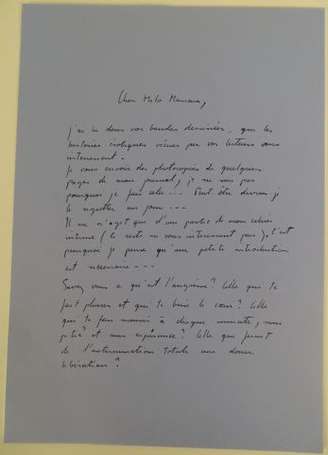 Cher Milo Manara,
j'ai lu dans vos bandes dessinées, que les
histoires érotiques vécues par vos lectrices vous
intéressent.
Je vous envoie des photocopies de quelques
pages de mon journal; je ne sais pas
pourquoi je fais cela --- Peut être devrai je
le regretter un jour ---
Il ne s'agit que d'une partie de mon cahier
intime (le reste ne vous intéressent pas); c'est
pourquoi je pense qu'une petite introduction
est nécessaire ---
Savez vous ce qui est l'angoisse? Celle que te
fait pleurer et que te brise le cœur? Celle
que te fais mourir à chaque minute, sans
pitié et sans espérance? Celle que permet
de l'extermination totale une douce
libération?